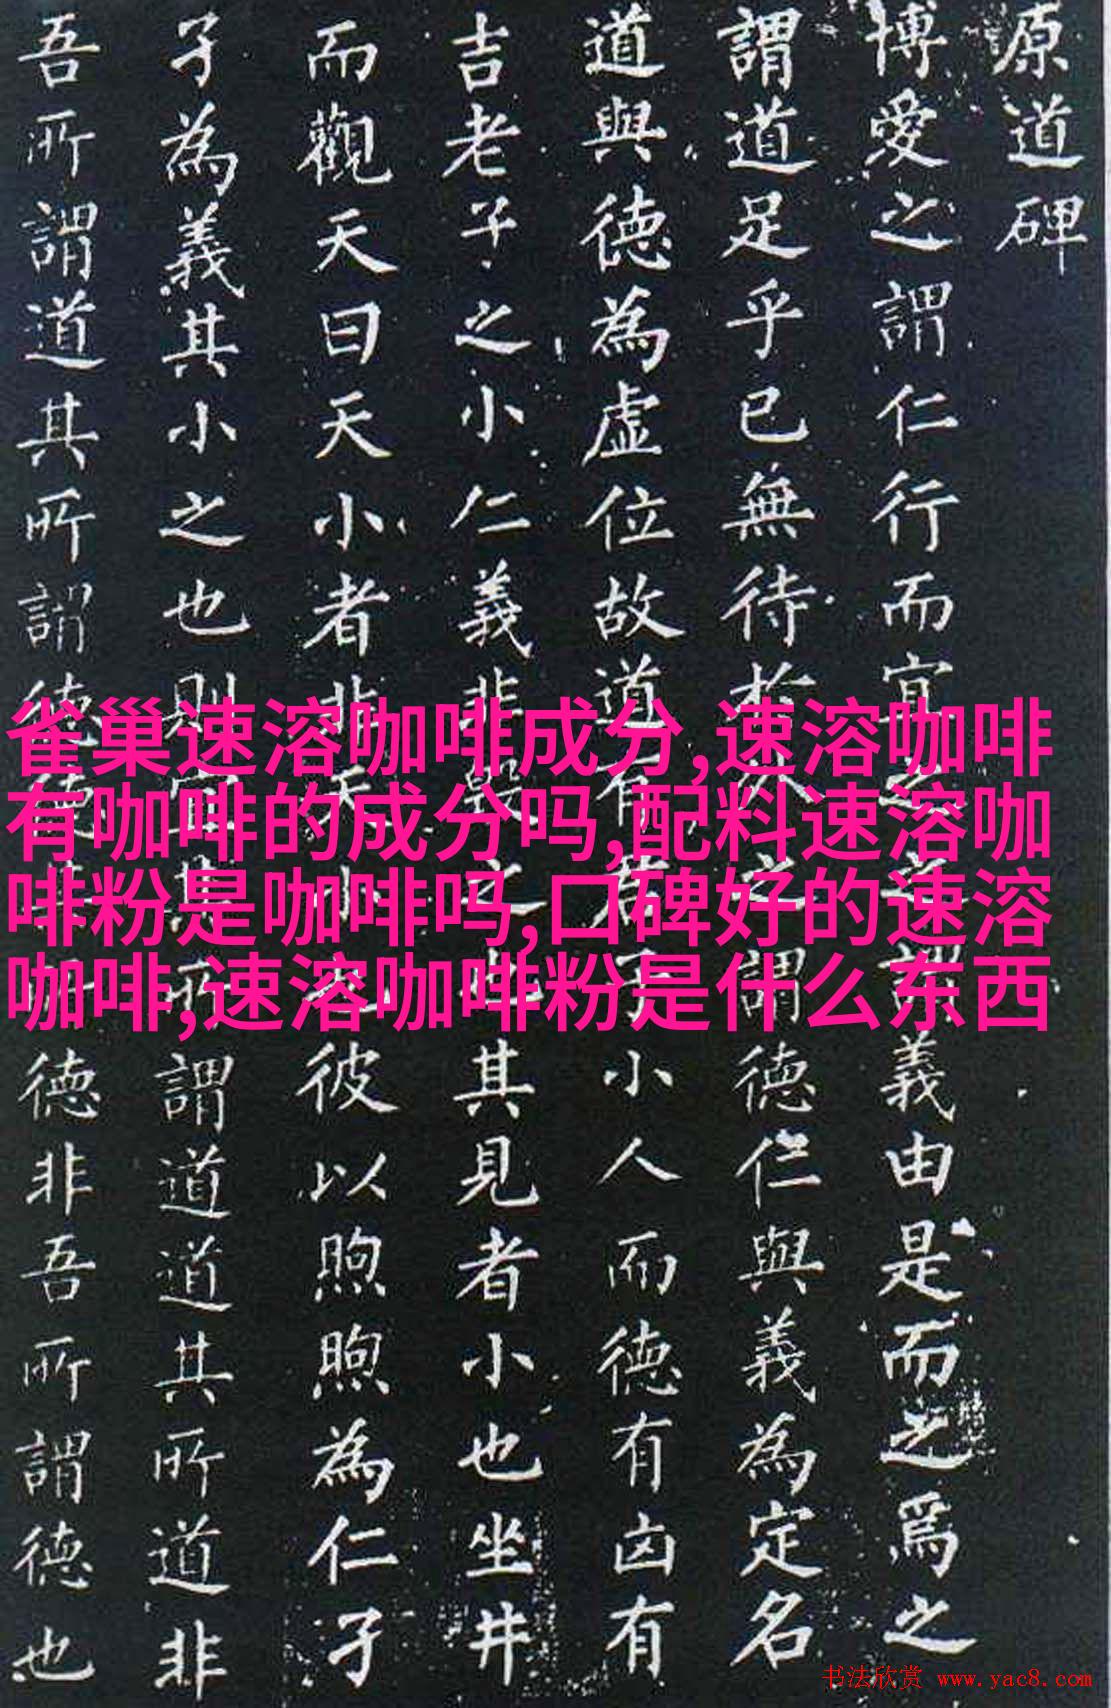 原道碑
博愛之謂仁行而宜之之謂義由是而之焉之
謂道足乎已無待於外之謂德仁與義為定名
道與德為虛位故道有君子小人而德有凶有
吉老子之小仁義非毀之也其見者小也坐井
而觀天曰天小者非天小也彼以煦煦為仁孑
孑為義其小之也則宜其所謂道道其所道非
吾所謂道其所謂德德其所德非吾所謂德也
雀巢速溶咖啡成分,速溶咖啡
有咖啡的成分吗,配料速溶咖
啡粉是咖啡吗,口碑好的速溶
咖啡,速溶咖啡粉是什么东西
书法欣赏 www.yac8.com